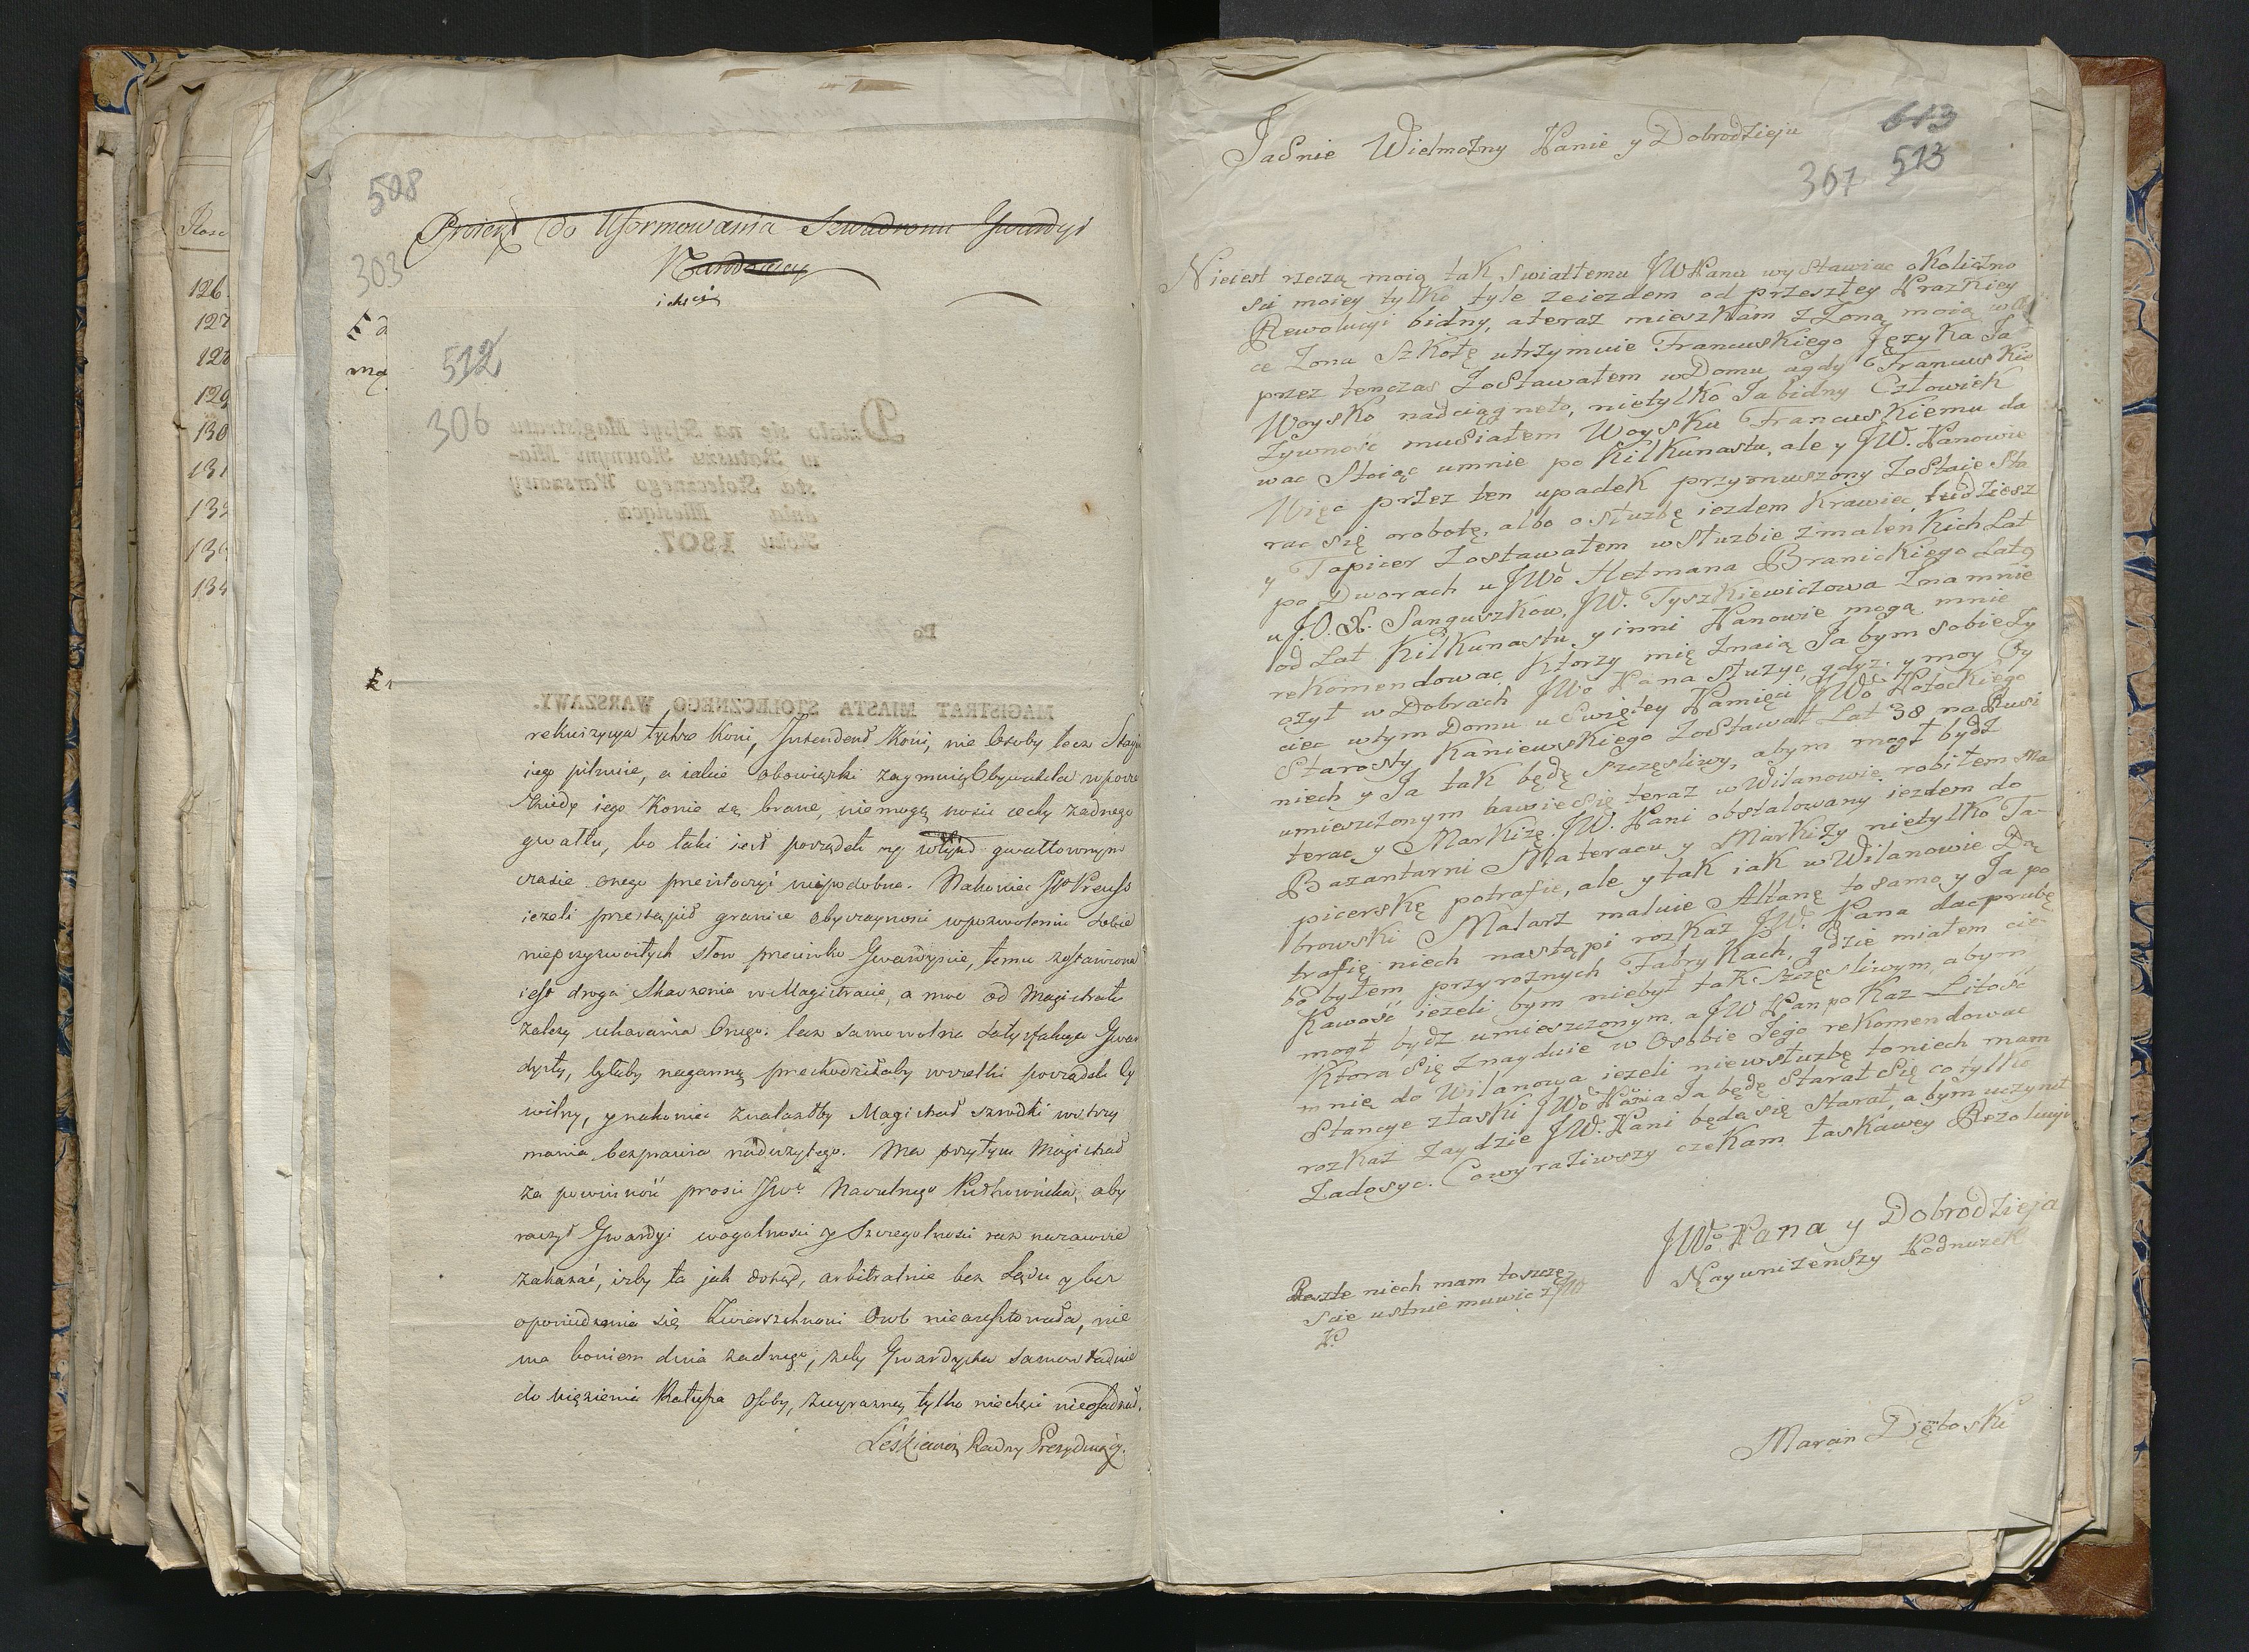 508
Proiekt do Uformowania Szwadronu Gwardyi
Narodowey
303
512
306
Działo się na Sessyi Magistratu
w Ratuszu Głownym Mia-
sta Stołecznego Warszawy
dnia Miesiąca
Roku 1807.
MAGISTRAT MIASTA STOŁECZNEGO WARSZAWY.
rekwizycya tychże Koni, Intendent Koni, nie Osoby lecz
iego pilnuie, a iakie obowiązki zaymuią Obywatela
kiedy iego Konie są brane, niemogą nosić cechy żadnego
gwałtu, bo taki iest porządek y gwałtownym
czasie onego niepodobna. Nakoniec JP Preuss
ieżeli przestąpił granice Obyczayności wpozwoleniu sobie
nieprzyzwoitych słow przeciwko Gwardyście, temu zostawiona
iest droga Skarzenia w Magistracie, a moc od Magistratu
zależy ukarania Onego. lecz samowolna satysfakcya Gwar
dysty, byłaby naganną, przechodziłaby wszelki porządek Cy
wilny, y nakoniec znalazłby Magistrat szrodki wstrzy
mania bezprawia nadużytego. Ma przytym Magistrat
za powinność prosić JWo Naczelnego Pułkownika, aby
raczył Gwardyi wogulności y Szczegulności raz nazawsze
zakazać, iżby ta jak dotąd, arbitralnie bez Sądu y bez
opowiedzenia się Zwierzchności Osob niearesztowała, nie
ma bowiem dnia żadnego, żeby Gwardyska samowładnie
do więzienia Ratusza Osoby, zwyrazney tylko niechęci nieosadzał.
Leśkiewicz Radny Prezyduiący.
613
513
307
Jaśnie Wielmożny Panie y Dobrodzieju
Nieiest rzeczą moią tak Swiattemu JWPanu wystawiac okoliczno
sci moiey tylko tyle zeiezdem od przeszłey Prazkiey
Rewolucyi bidny, ateraz mieszkam z Zoną moią
ce Zona Szkołę utrzymuie Francuskiego Języka Ja
przez tenczas Zostawałem wDomu agdy Francuskie
Woysko nadciągneło, nietylko Ja bidny Człowiek
Zywność musiałem Woysku Francuskiemu da
wac Stoiąc umnie po Kilkunastu, ale y JW. Panowie
Więc przez ten upadek przymuszony Zostaię Sta
rac się orobotę, albo o służbę iezdem Krawiec, tudziesz
y Tapicer Zostawałem w służbie zmaleńkich Lat
po Dworach u JWo Hetmana Branickiego
u J.O.X. Sanguszkow, JW. Tyszkiewiczowa Zna mnie
od Lat Kilkunastu y inni Panowie mogą mnie
rekomendować Ktorzy mię Znaią Ja bym sobie Zy
czył w Dobrach JWo Pana służyc, gdyz y moy Oy
ciec wtym Domu u Swiętey Pamięci JWo Potockiego
Starosty Kaniewskiego Zostawał Lat 38 na Rusi
niech y Ja tak będę Szczęśliwy, abym mogł bydz
umieszczonym bawię się teraz w Wilanowie robiłem Ma
terac y Markizę JW. Pani obstalowany iezdem do
Bazantarni Materacu y Markizy nietylko Ta-
picerskę potrafie, ale y tak iak w Wilanowie Dą
browski Malarz maluie Altanę tosamo y Ja po
trafię niech nastąpi rozkaz JW. Pana dac prubę
bo byłem przyroznych Fabrykach, gdzie miałem cie
kawość iezeli bym niebył tak Szczęśliwym, abym
mogł bydz umieszczonym, a JW Pan pokaz Litość
Ktora się znayduie w Osobie Jego rekomendowac
mnię do Wilanowa iezeli niewsłuzbę toniech mam
Stancye złaski JWo Pana Ja będę Starał się co tylko
rozkaz Zaydzie JW. Pani będę się starał, abym uczynił
Zadosyc. Cowyraziwszy czekam łaskawey Rezolucyi
JWo. Pana y Dobrodzieja
Nayunizenszy Podnuzek
Resztę niech mam toszczę
scie ustnie muwic z JW
P.
Marcin Dęboski